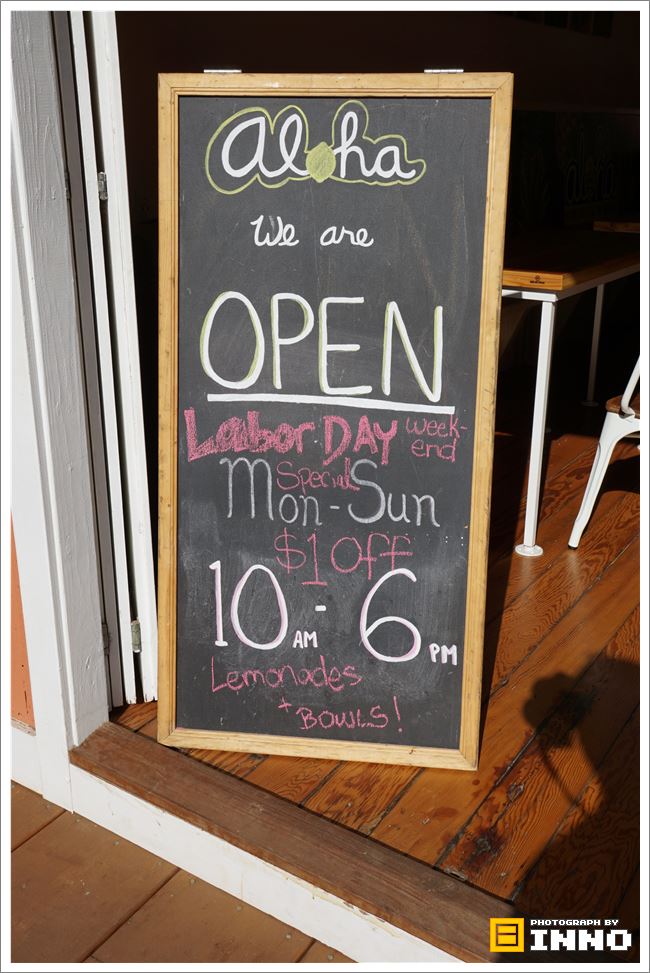 aloha
We are
OPEN
Labor DAY Week-
end
Special
Mon - Sun
$1 Off
10 AM - 6 PM
Lemonades
+ BOWLS!
PHOTOGRAPH BY
INNO